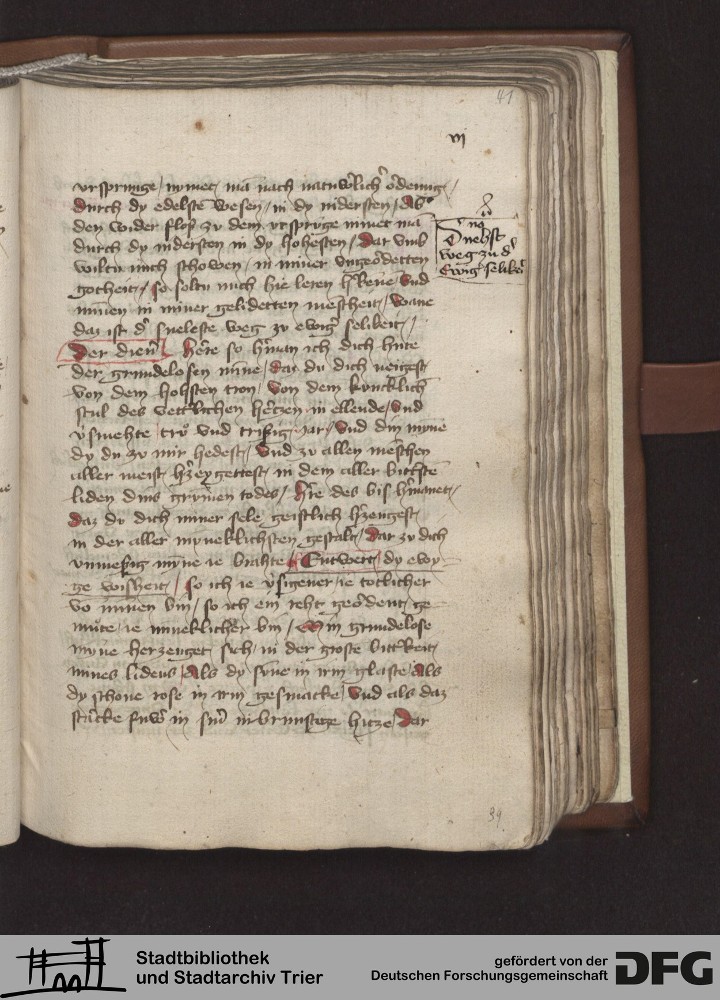 41
vj
vrsprunge / nymet mā nach naturlicħ ordenūg /
durch dy edelstē wesen / in dy nidersten / Ab͛
den wider flus zu dem vrsprūge nimet mā
durch dy nidersten in dy hohesten / Dar vmb
wiltu mich schowen / in miner vngeordetten
gotheit / so soltu mich hie leren
minen in miner gelidetten menscheit / wane
daz ist d͛ snelste weg zu ewig͛ selikeit /
Der dien͛ Here so h͛man ich dich hute
der grundelosen mine / daz du dich neigest
von dem hohsten tron / von dem kunicklich
stul des vetterlichen hertzen in ellende / vnd
v͛smehte / vnd drisig jar / vnd din myne
dy du zu mir hedest / vnd zu allen mēschen
aller meist h͛zeygettest in dem aller bitt͛stē
liden dins grymen todes / h͛re des bis h͛manet /
daz du dich miner sele geistlich h͛zeugest
in der aller myneklichsten gestalt / dar zu dich
vnmesig myne ie brahte / Entwert dy ewy
ge wisheit / so ich ie v͛sigener ie totlicher
vō minen bin / so ich eim reht geordent ge
mute ie mineklicher bin / Min grundelose
myne herzeuget sich in der grose bitt͛keit
mines lidens / Als dy sūne in irm glaste / als
dy schone rose in irm gesmacke / vnd als daz
starcke fuwer in sin͛ inbrunstige hitze / Dar
D nehst
weg zu d͛
Ewig͛ selikeit
39
Stadtbibliothek
und Stadtarchiv Trier
gefördert von der
Deutschen Forschungsgemeinschaft
DFG